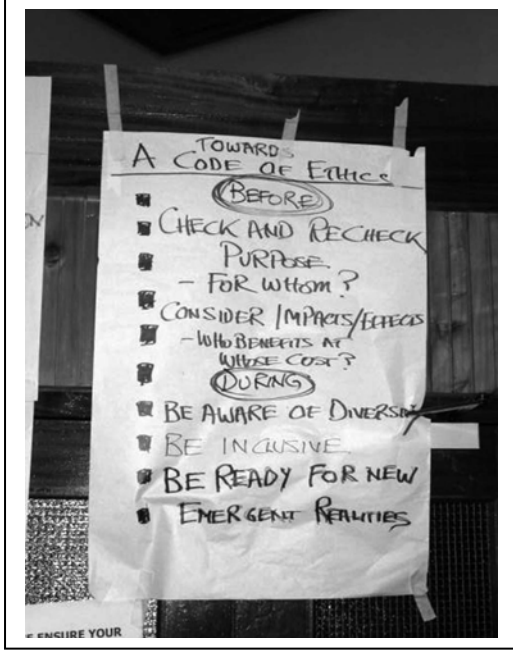 TOWARDS
A CODE OF ETHICS
BEFORE
CHECK AND RECHECK
PURPOSE
- FOR WHOM?
CONSIDER IMPACTS/EFFECTS
- WHO BENEFITS AT
WHOSE COST?
DURING
BE AWARE OF DIVERSITY
BE INCLUSIVE
BE READY FOR NEW
EMERGENT REALITIES
ENSURE YOUR